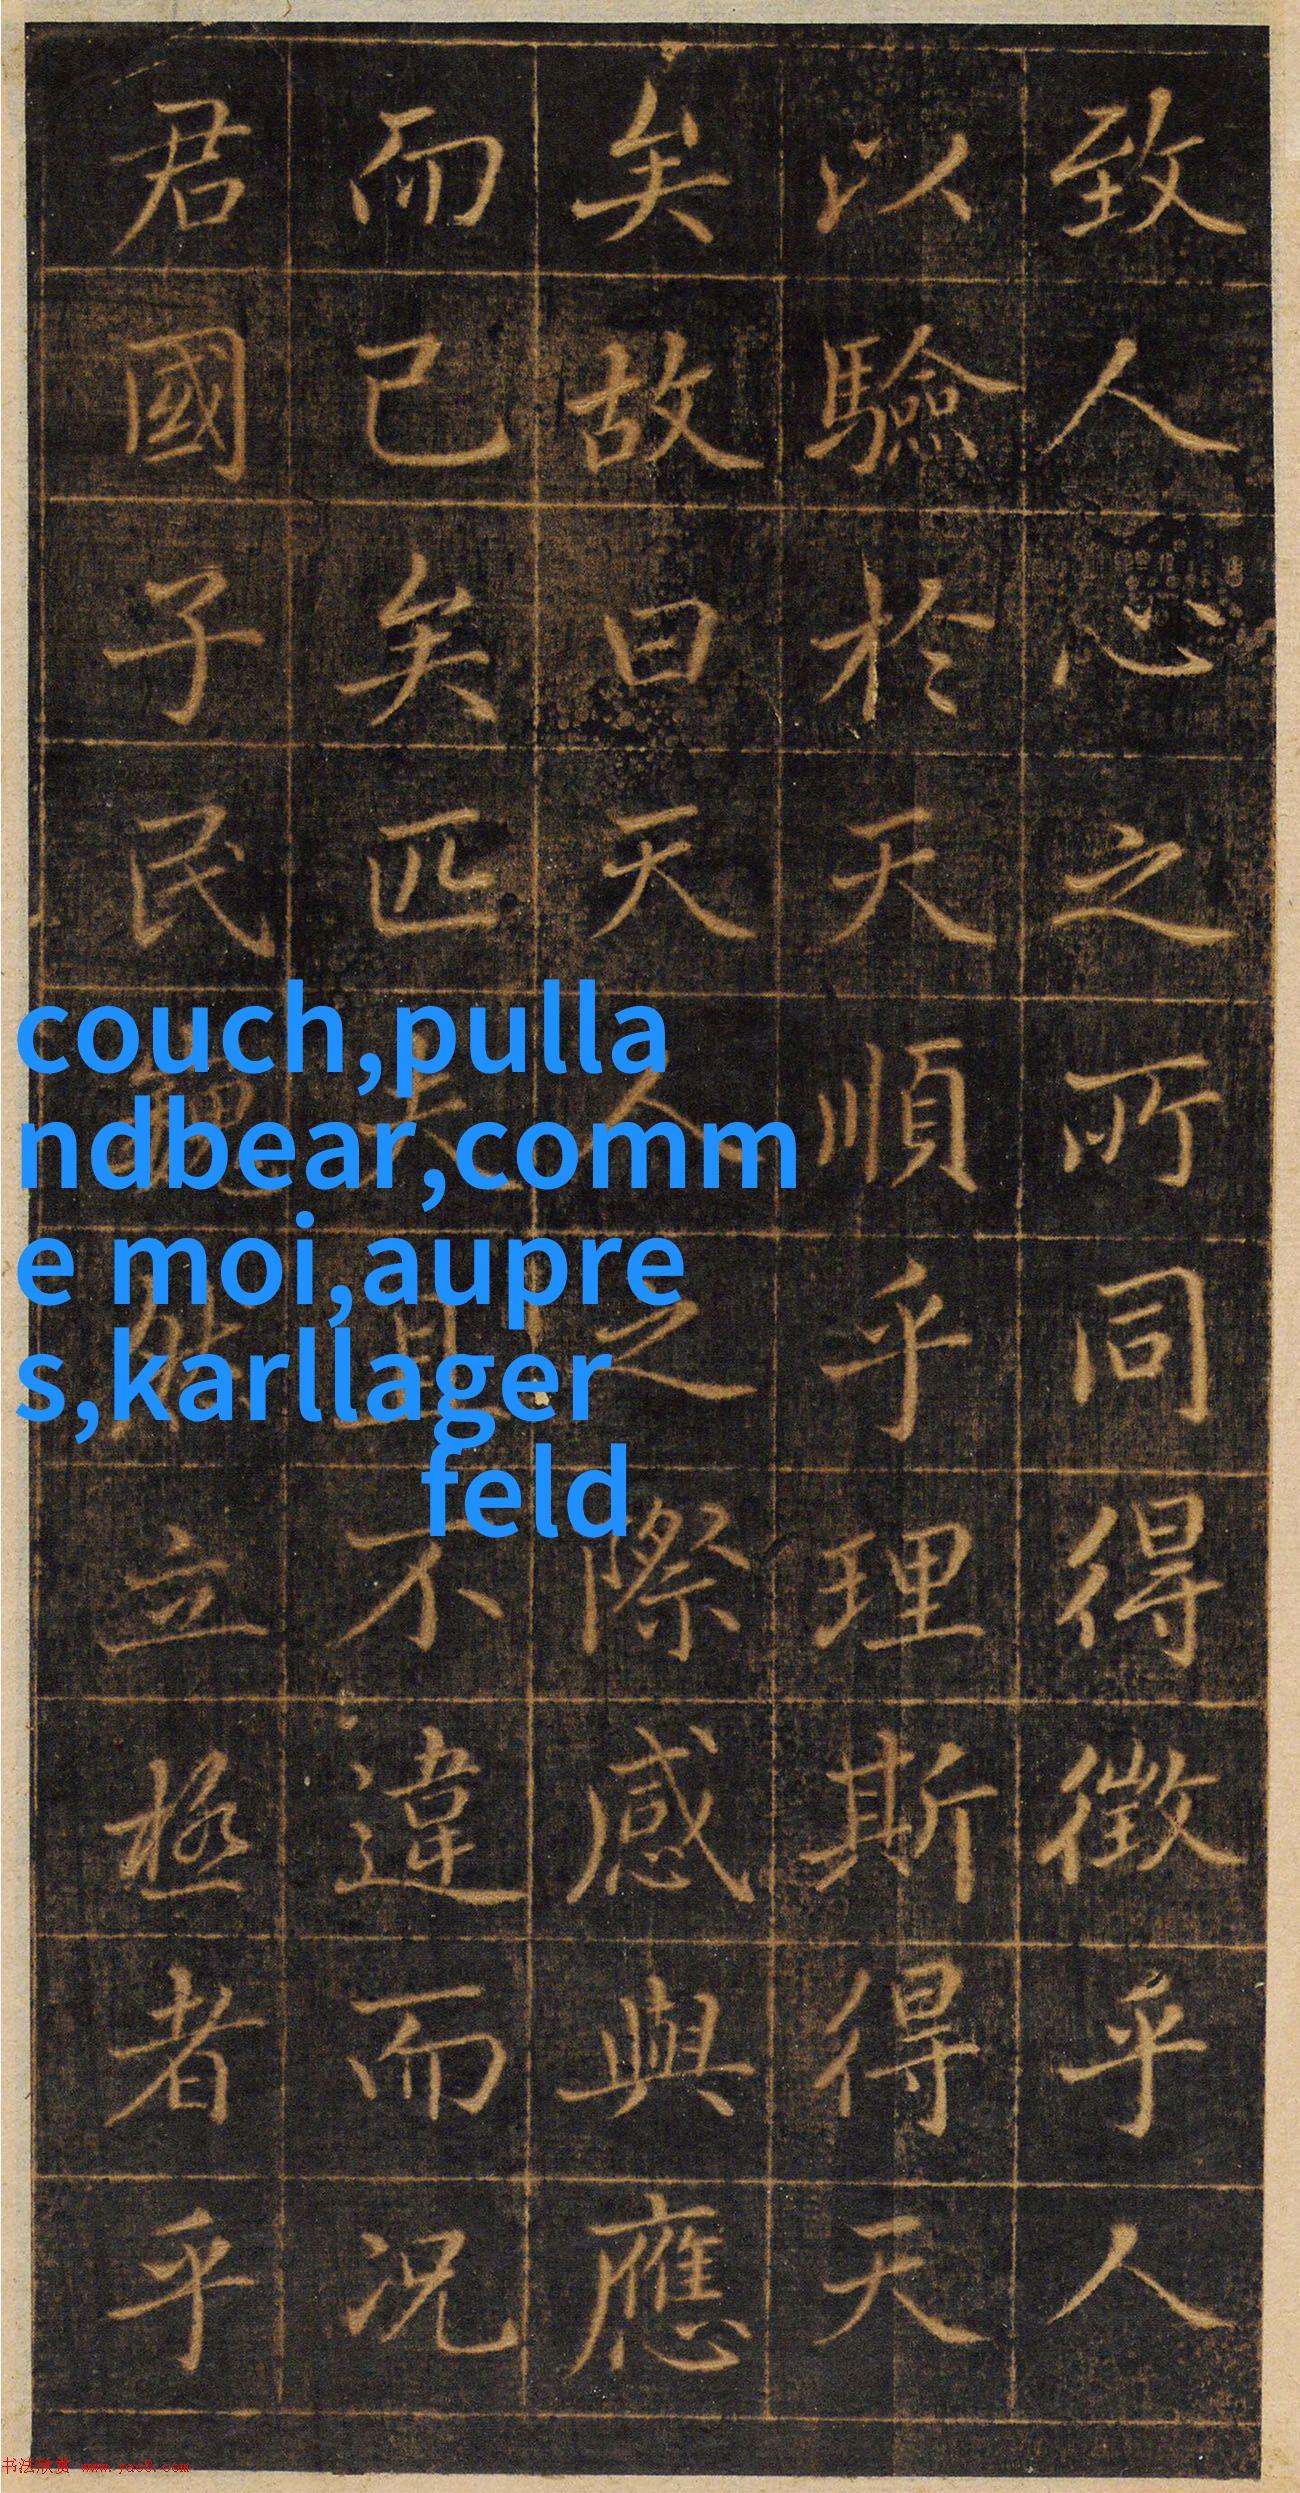 致人心之所同得徵乎人
以驗於天順乎理斯得天
矣故曰天人之際感與應
而已矣匹夫且不違而況
君國子民立極者乎
couch,pulla
ndbear,comm
e moi,aupre
s,karllager
feld
书法欣赏 www.yac8.com